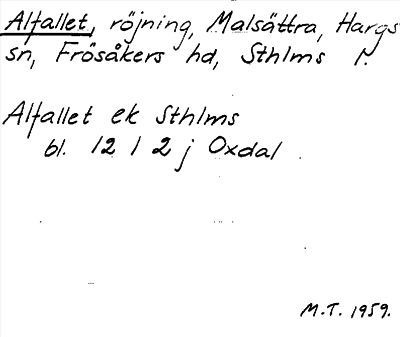 Alfallet, röjning, Malsättra, Hargs
sn, Frösåkers hd, Sthlms l.
Alfallet ek Sthlms
bl. 12 1 2 j Oxdal
M.T. 1959.